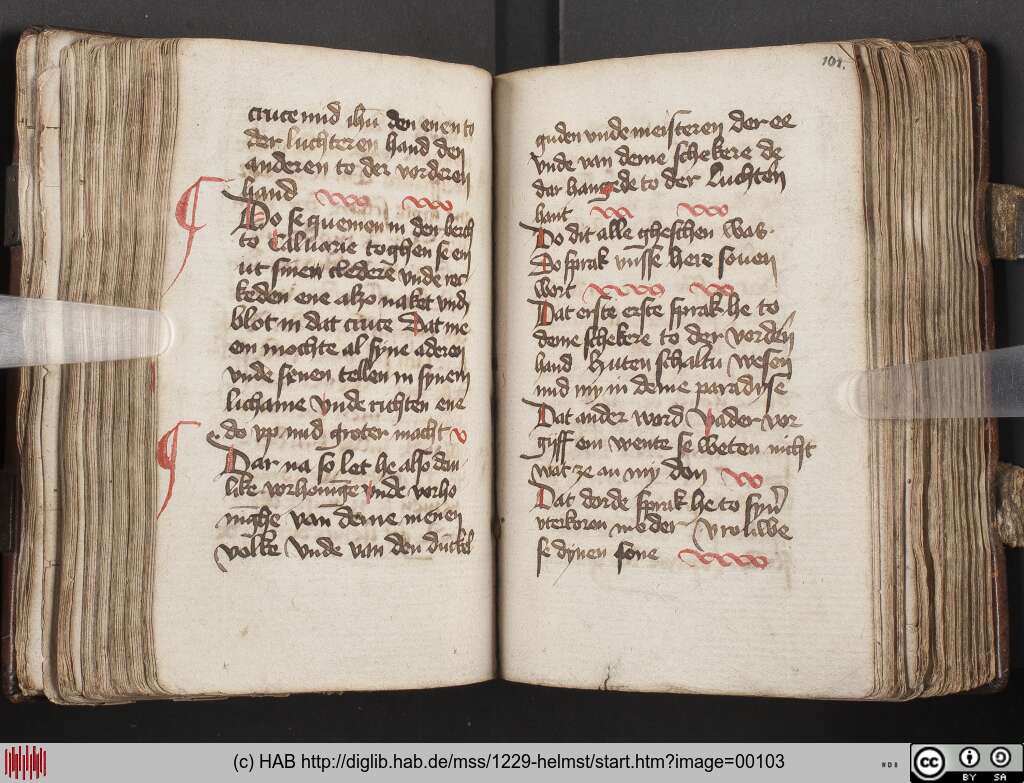 cruce mid ihū den enen to
der luchteren hand den
anderen to der vorderen
hand
Do se quemen in den berch
to Caluarie toghen se em
ut sinen cledere vnde rec
keden ene alzo naket vnd
blot in dat cruce Dat me
em mochte al syne aderen
vnde senen tellen in synem
lichame vnde richten ene
do vp mid groter macht
Dar na so let he also den
like vorhonige vnde vorho
nīghe van deme menen
volke vnde van den
101.
guden vnde meisteren der ee
vnde van deme schekere de
dar hangede to der Luchten
hant
Do dit alle gheschen was
Do sprak vnsse here souen
wort
Dat erste erste sprak he to
deme schekere to der vorden
hand Huten schaltu wesen
mid my in deme paradyse
Dat ander word Vader vor
giff em wente se weten nicht
wat ze an my don
Dat dorde sprak he to syner
vterkoren moder Vrouwe
se dynen sone
(c) HAB http://diglib.hab.de/mss/1229-helmst/start.htm?image=00103
WDB
cc
BY SA